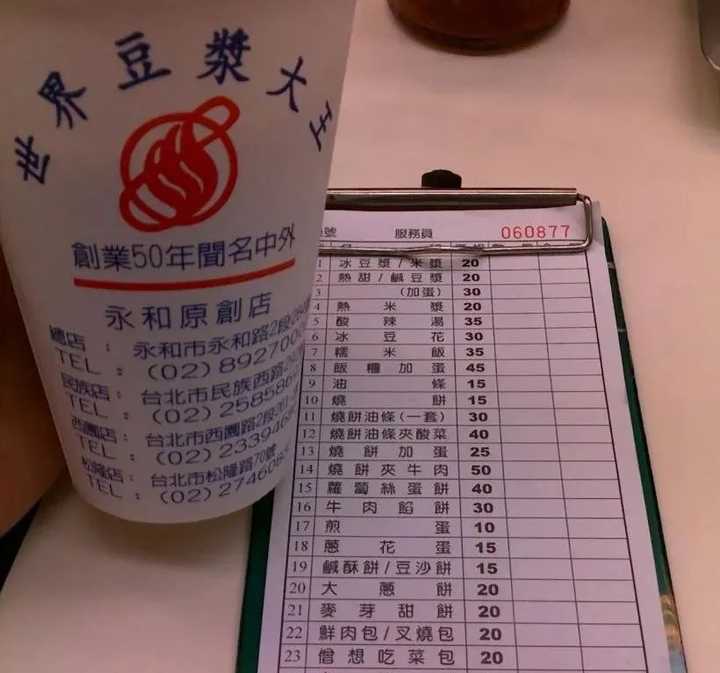 世界豆漿大王
創業50年聞名中外
永和原創店
總店： 永和市永和路2段
TEL： (02) 892700
民族店： 台北市民族西路
TEL： (02) 25858
西園店： 台北市西園路2段
TEL： (02) 233946
松隆店： 台北市松隆路70號
TEL： (02) 274606
號 服務員 060877
1 冰豆漿/米漿 20
2 熱甜/鹹豆漿 20
3 (加蛋) 30
4 熱米漿 20
5 酸辣湯 35
6 冰豆花 30
7 糯米飯 35
8 飯糰加蛋 45
9 油條 15
10 燒餅 15
11 燒餅油條(一套) 30
12 燒餅油條夾酸菜 40
13 燒餅加蛋 25
14 燒餅夾牛肉 50
15 蘿蔔絲蛋餅 40
16 牛肉餡餅 30
17 煎蛋 10
18 蔥花蛋 15
19 鹹酥餅/豆沙餅 15
20 大蔥餅 20
21 麥芽甜餅 20
22 鮮肉包/叉燒包 20
23 僧想吃菜包 20